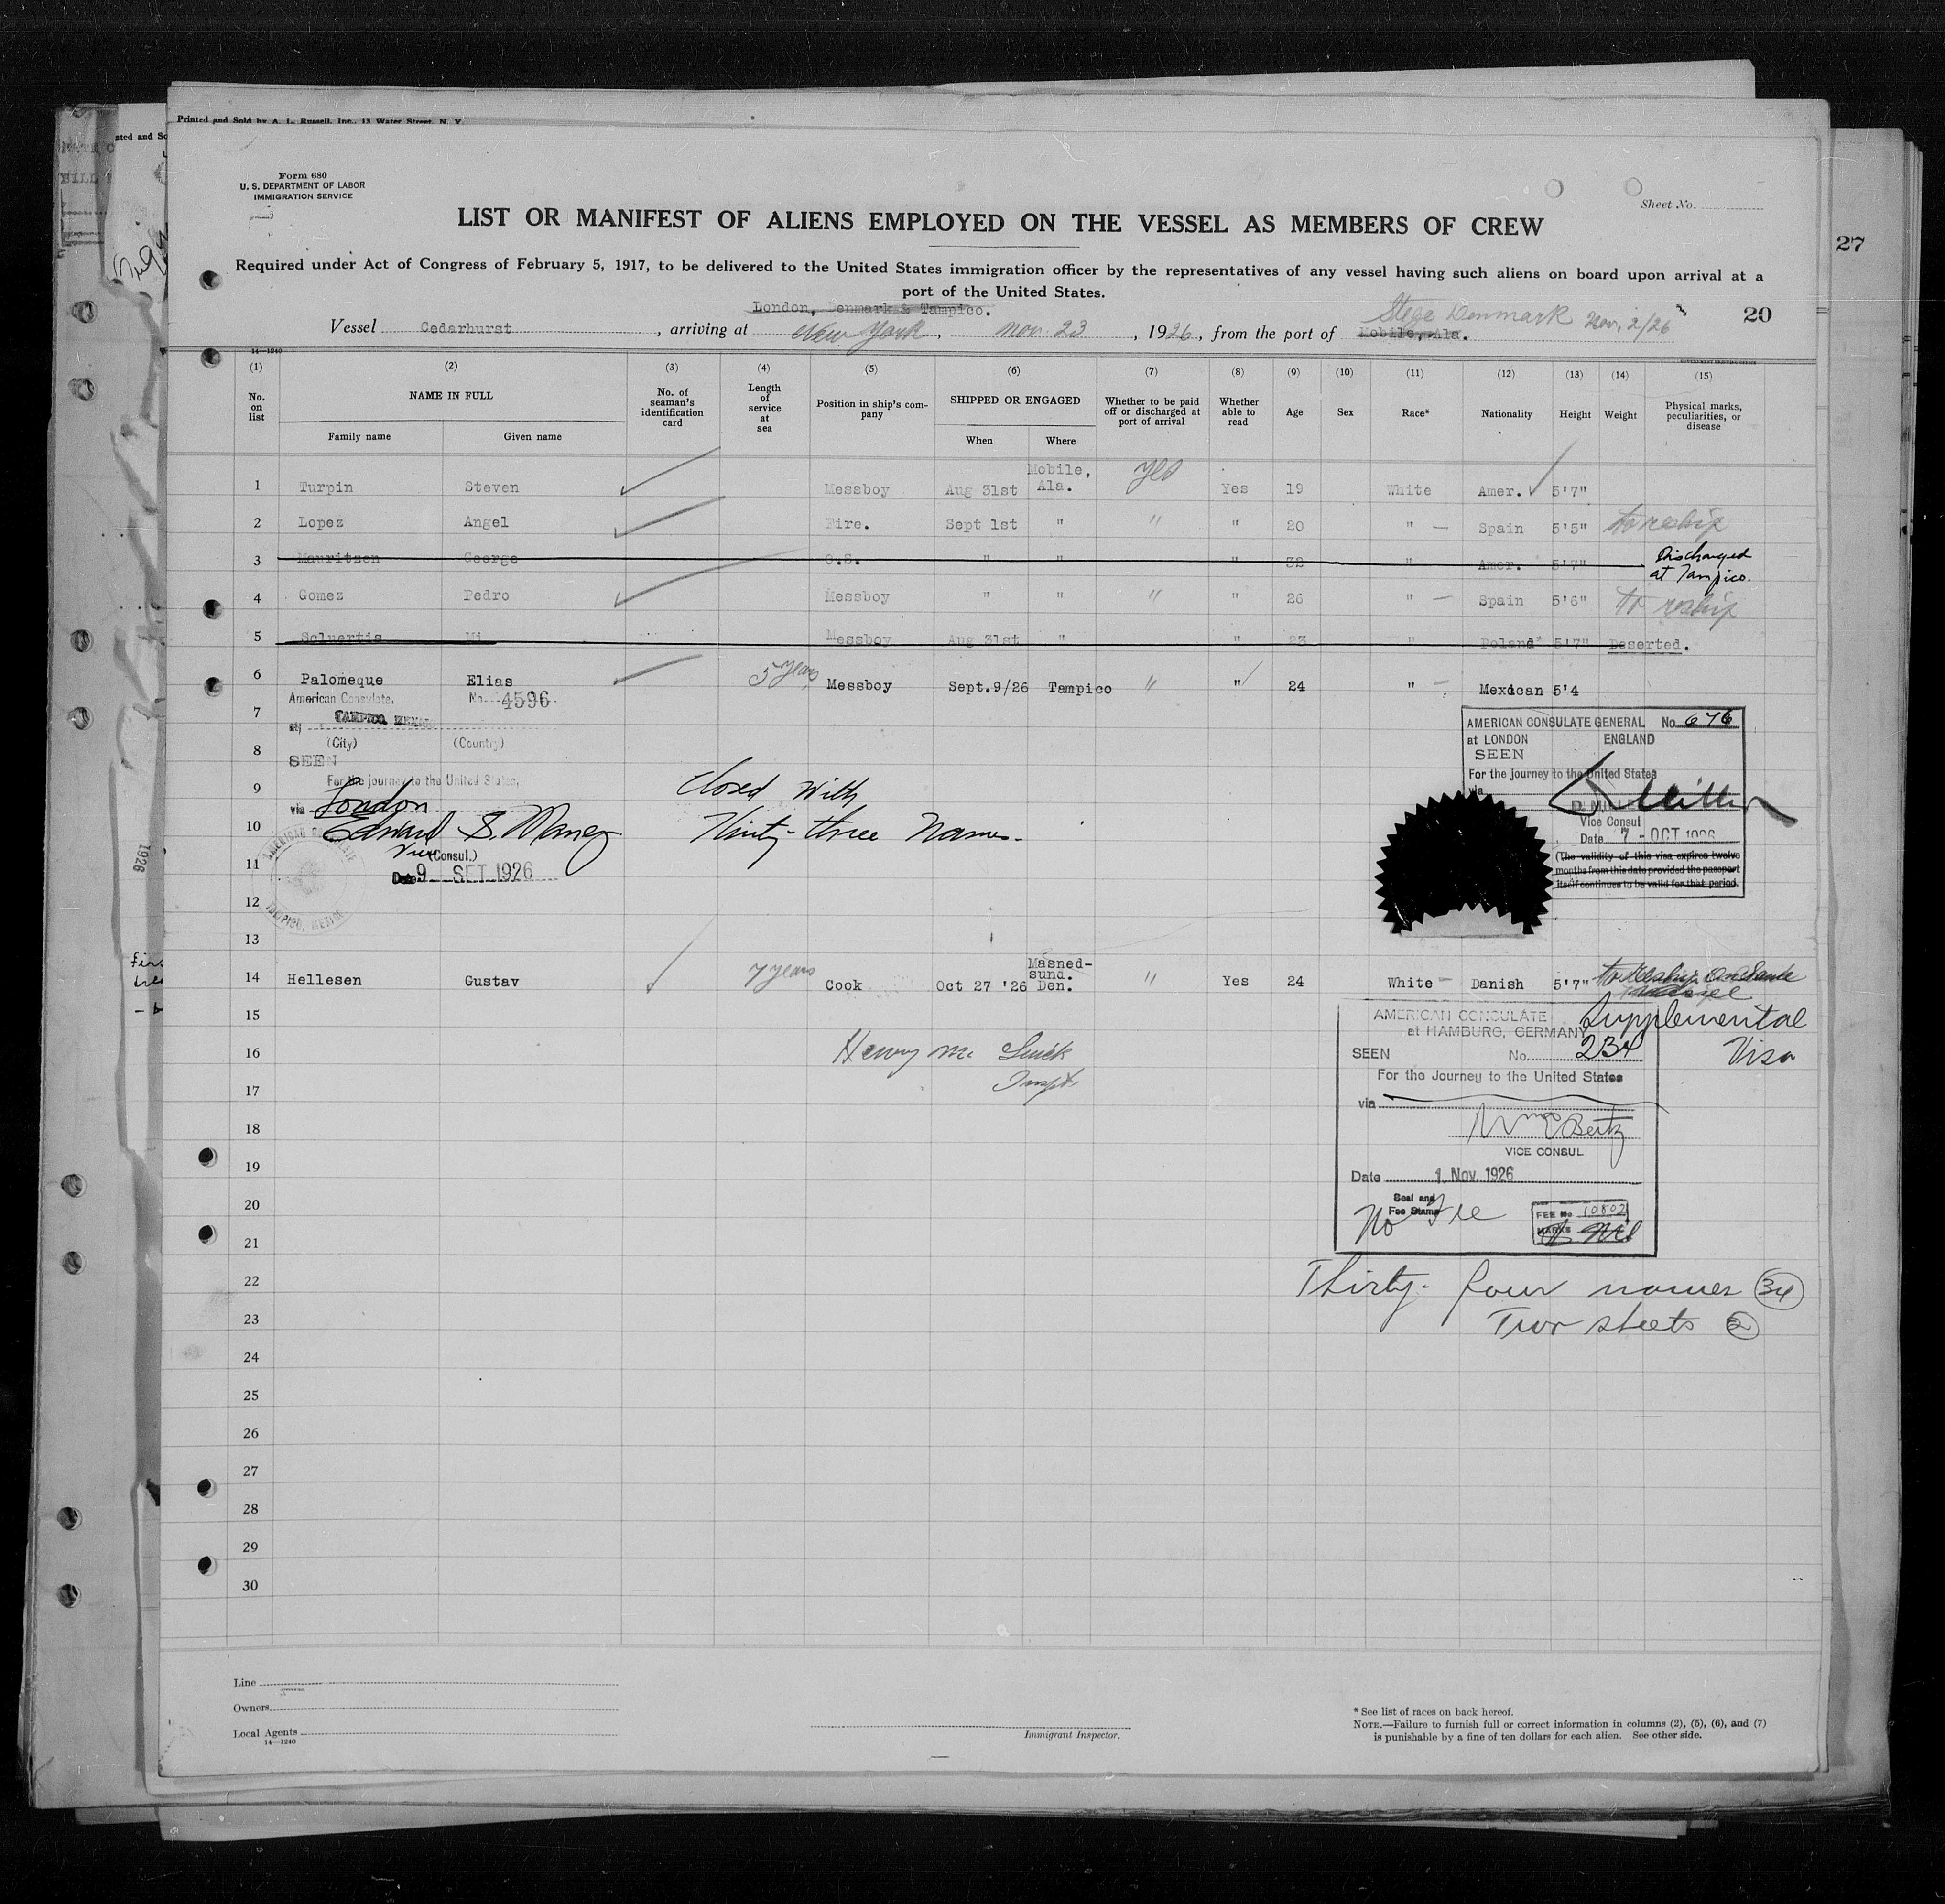 Printed and Sold by A. L. Russell, Inc., 13 Water Street, N. Y.
Form 680
U. S. DEPARTMENT OF LABOR
IMMIGRATION SERVICE
Sheet No.
LIST OR MANIFEST OF ALIENS EMPLOYED ON THE VESSEL AS MEMBERS OF CREW
27
Required under Act of Congress of February 5, 1917, to be delivered to the United States immigration officer by the representatives of any vessel having such aliens on board upon arrival at a
port of the United States.
London, Denmark & Tampico.
Stege Denmark Nov, 2/26
20
Vessel Cedarhurst, arriving at New York, Nov. 23, 1926, from the port of Mobile, Ala.
14—1240
(1) (2) (3) (4) (5) (6) (7) (8) (9) (10) (11) (12) (13) (14) (15)
No. on list
NAME IN FULL
Family name
Given name
No. of seaman's identification card
Length of service at sea
Position in ship's company
SHIPPED OR ENGAGED
When
Where
Whether to be paid off or discharged at port of arrival
Whether able to read
Age
Sex
Race*
Nationality
Height
Weight
Physical marks, peculiarities, or disease
1 Turpin Steven Messboy Aug 31st Mobile, Ala. Yes Yes 19 White Amer. 5'7"
2 Lopez Angel Fire. Sept 1st " " " 20 " Spain 5'5" to reship
3 Mauritzen George O.S. " " " 32 " Amer. 5'7" Discharged at Tampico.
4 Gomez Pedro Messboy " " " " 26 " Spain 5'6" to reship
5 Messboy Aug 31st " " 23 " Poland 5'7" Deserted.
6 Palomeque Elias 5 years Messboy Sept.9/26 Tampico " " 24 " Mexican 5'4
American Consulate, No. 4596
7
at TAMPICO, MEXICO
(City) (Country)
8
SEEN
For the journey to the United States,
9
via London
10
Edward S. Maney
Vice (Consul.)
11
Date 9 SET 1926
AMERICAN CONSULATE
TAMPICO, MEXICO
Closed with
Thirty-three Names.
AMERICAN CONSULATE GENERAL No. 676
at LONDON ENGLAND
SEEN
For the journey to the United States
via
D. Miller
D. MILLER
Vice Consul
Date 7 - OCT 1926
(The validity of this visa expires twelve
months from this date provided the passport
itself continues to be valid for that period.
12
13
14 Hellesen Gustav 7 years Cook Oct 27 '26 Masned-sund. Den. " Yes 24 White Danish 5'7" to Reship
15
16
17
Henry
AMERICAN CONSULATE
at HAMBURG, GERMANY
SEEN No. 234
Supplemental
Visa
For the Journey to the United States
via
VICE CONSUL
Date 1. Nov. 1926
Seal and
Fee Stamp
No Fee
FEE No 10802
MARKS
18
19
20
21
22
23
24
25
26
27
28
29
30
Thirty-four names 34
Two sheets 2
1926
Line
Owners
Local Agents
14—1240
Immigrant Inspector.
* See list of races on back hereof.
NOTE.—Failure to furnish full or correct information in columns (2), (5), (6), and (7)
is punishable by a fine of ten dollars for each alien. See other side.